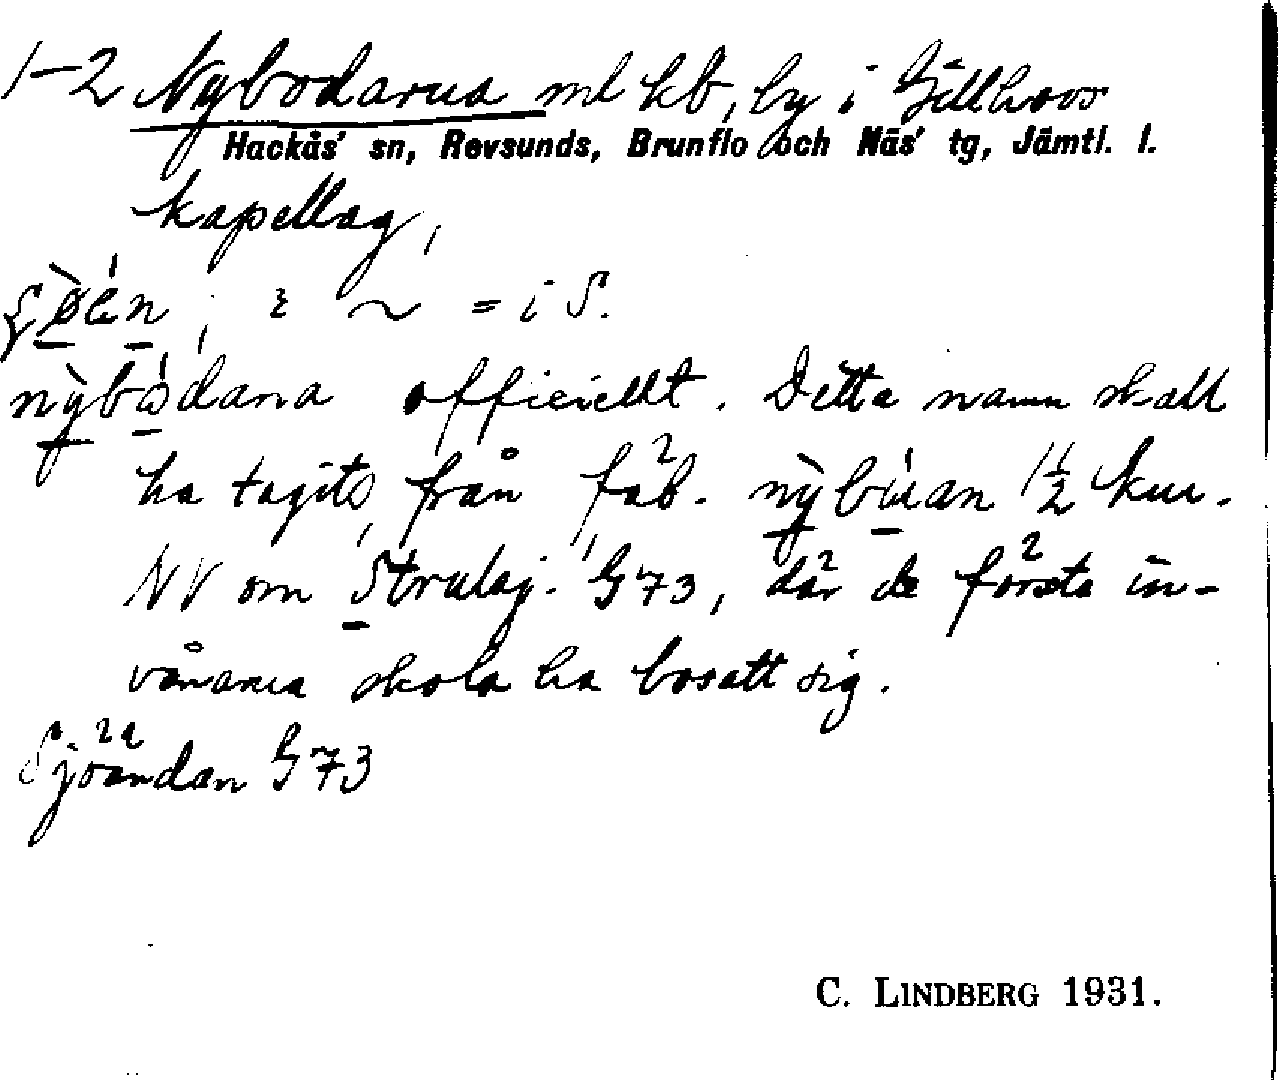 1–2 Nybodarna ml kb, by i Gillhovs
Hackås' sn, Revsunds, Brunflo och Näs' tg, Jämtl. l.
kapellag,
= i S.
nybodana officiellt. Detta namn skall
ha tagits från fäb. nybuan 1½ km.
NV om Strulsj. G 73, där de första in-
vånarna skola ha bosatt sig.
Sjöändan G 73
C. LINDBERG 1931.